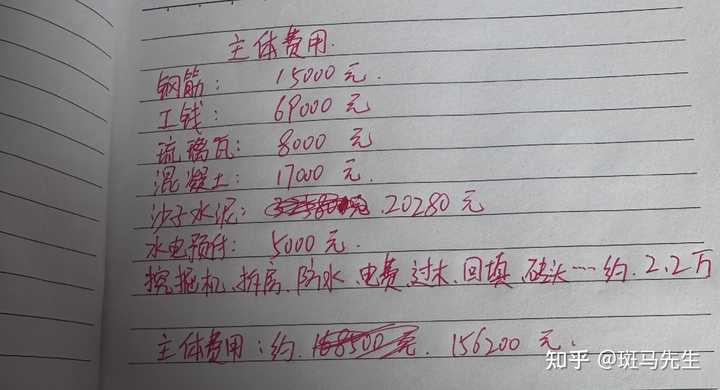 主体费用.
钢筋: 15000元.
工钱: 69000元
琉璃瓦: 8000元
混凝土: 17000元.
沙子水泥: 20280元
水电预付: 5000元.
挖掘机、拆房、防水、电费、过木、回填、砖头……约.2.2万
主体费用:约.168500元. 156200元.
知乎 @斑马先生